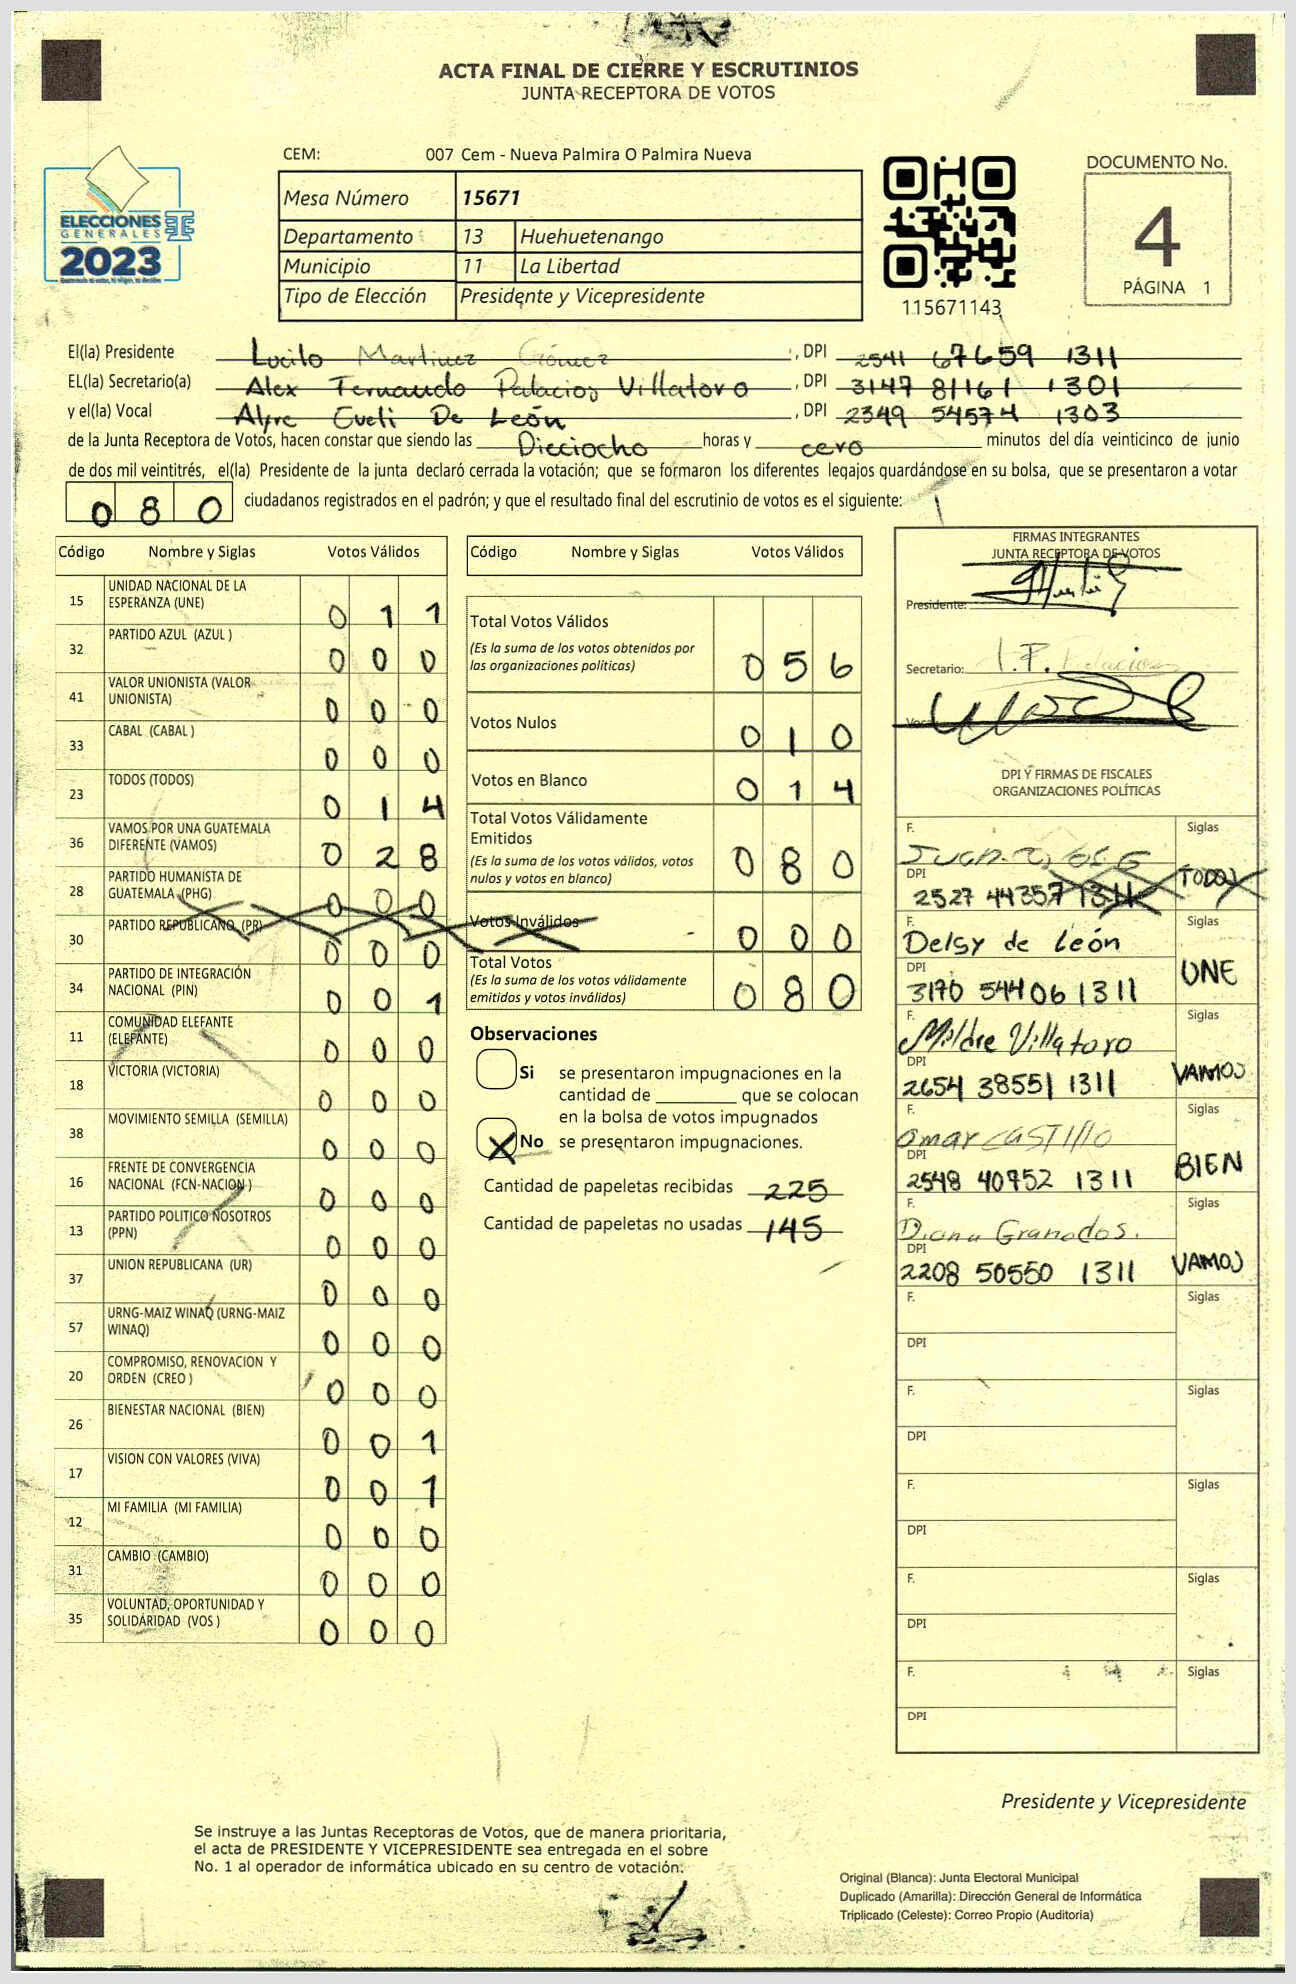 ACTA FINAL DE CIERRE Y ESCRUTINIOS
JUNTA RECEPTORA DE VOTOS
CEM: 007 Cem - Nueva Palmira O Palmira Nueva
Mesa Número 15671
Departamento 13 Huehuetenango
Municipio 11 La Libertad
Tipo de Elección Presidente y Vicepresidente
ELECCIONES
GENERALES
2023
115671143
DOCUMENTO No.
4
PÁGINA 1
El(la) Presidente Lucilo Martinez Gómez , DPI 2541 67659 1311
EL(la) Secretario(a) Alex Fernando Palacios Villatoro , DPI 3147 81161 1301
y el(la) Vocal Alyre Eveli De León , DPI 2349 54574 1303
de la Junta Receptora de Votos, hacen constar que siendo las Dieciocho horas y cero minutos del día veinticinco de junio
de dos mil veintitrés, el(la) Presidente de la junta declaró cerrada la votación; que se formaron los diferentes legajos guardándose en su bolsa, que se presentaron a votar
080 ciudadanos registrados en el padrón; y que el resultado final del escrutinio de votos es el siguiente:
Código Nombre y Siglas Votos Válidos
15 UNIDAD NACIONAL DE LA ESPERANZA (UNE) 0 1 1
32 PARTIDO AZUL (AZUL ) 0 0 0
41 VALOR UNIONISTA (VALOR UNIONISTA) 0 0 0
33 CABAL (CABAL ) 0 0 0
23 TODOS (TODOS) 0 1 4
36 VAMOS POR UNA GUATEMALA DIFERENTE (VAMOS) 0 2 8
28 PARTIDO HUMANISTA DE GUATEMALA (PHG) 0 0 0
30 PARTIDO REPUBLICANO (PR) 0 0 0
34 PARTIDO DE INTEGRACIÓN NACIONAL (PIN) 0 0 1
11 COMUNIDAD ELEFANTE (ELEFANTE) 0 0 0
18 VICTORIA (VICTORIA) 0 0 0
38 MOVIMIENTO SEMILLA (SEMILLA) 0 0 0
16 FRENTE DE CONVERGENCIA NACIONAL (FCN-NACION ) 0 0 0
13 PARTIDO POLITICO NOSOTROS (PPN) 0 0 0
37 UNION REPUBLICANA (UR) 0 0 0
57 URNG-MAIZ WINAQ (URNG-MAIZ WINAQ) 0 0 0
20 COMPROMISO, RENOVACION Y ORDEN (CREO ) 0 0 0
26 BIENESTAR NACIONAL (BIEN) 0 0 1
17 VISION CON VALORES (VIVA) 0 0 1
12 MI FAMILIA (MI FAMILIA) 0 0 0
31 CAMBIO (CAMBIO) 0 0 0
35 VOLUNTAD, OPORTUNIDAD Y SOLIDARIDAD (VOS ) 0 0 0
Código Nombre y Siglas Votos Válidos
Total Votos Válidos
(Es la suma de los votos obtenidos por
las organizaciones políticas) 0 5 6
Votos Nulos 0 1 0
Votos en Blanco 0 1 4
Total Votos Válidamente
Emitidos
(Es la suma de los votos válidos, votos
nulos y votos en blanco) 0 8 0
Votos Inválidos 0 0 0
Total Votos
(Es la suma de los votos válidamente
emitidos y votos inválidos) 0 8 0
Observaciones
Si se presentaron impugnaciones en la
cantidad de ________ que se colocan
en la bolsa de votos impugnados
X No se presentaron impugnaciones.
Cantidad de papeletas recibidas 225
Cantidad de papeletas no usadas 145
FIRMAS INTEGRANTES
JUNTA RECEPTORA DE VOTOS
Presidente:
Secretario:
Vocal
DPI Y FIRMAS DE FISCALES
ORGANIZACIONES POLÍTICAS
F. Siglas
DPI 2527 44357 1311 TODOS
F. Delsy de León Siglas
DPI 3170 54406 1311 UNE
F. Mildre Villatoro Siglas
DPI 2654 38551 1311 VAMOS
F. Omar CASTILLO Siglas
DPI 2548 40752 1311 BIEN
F. Diana Granados. Siglas
DPI 2208 50550 1311 VAMOS
F. Siglas
DPI
F. Siglas
DPI
F. Siglas
DPI
F. Siglas
DPI
F. Siglas
DPI
Presidente y Vicepresidente
Se instruye a las Juntas Receptoras de Votos, que de manera prioritaria,
el acta de PRESIDENTE Y VICEPRESIDENTE sea entregada en el sobre
No. 1 al operador de informática ubicado en su centro de votación.
Original (Blanca): Junta Electoral Municipal
Duplicado (Amarilla): Dirección General de Informática
Triplicado (Celeste): Correo Propio (Auditoria)